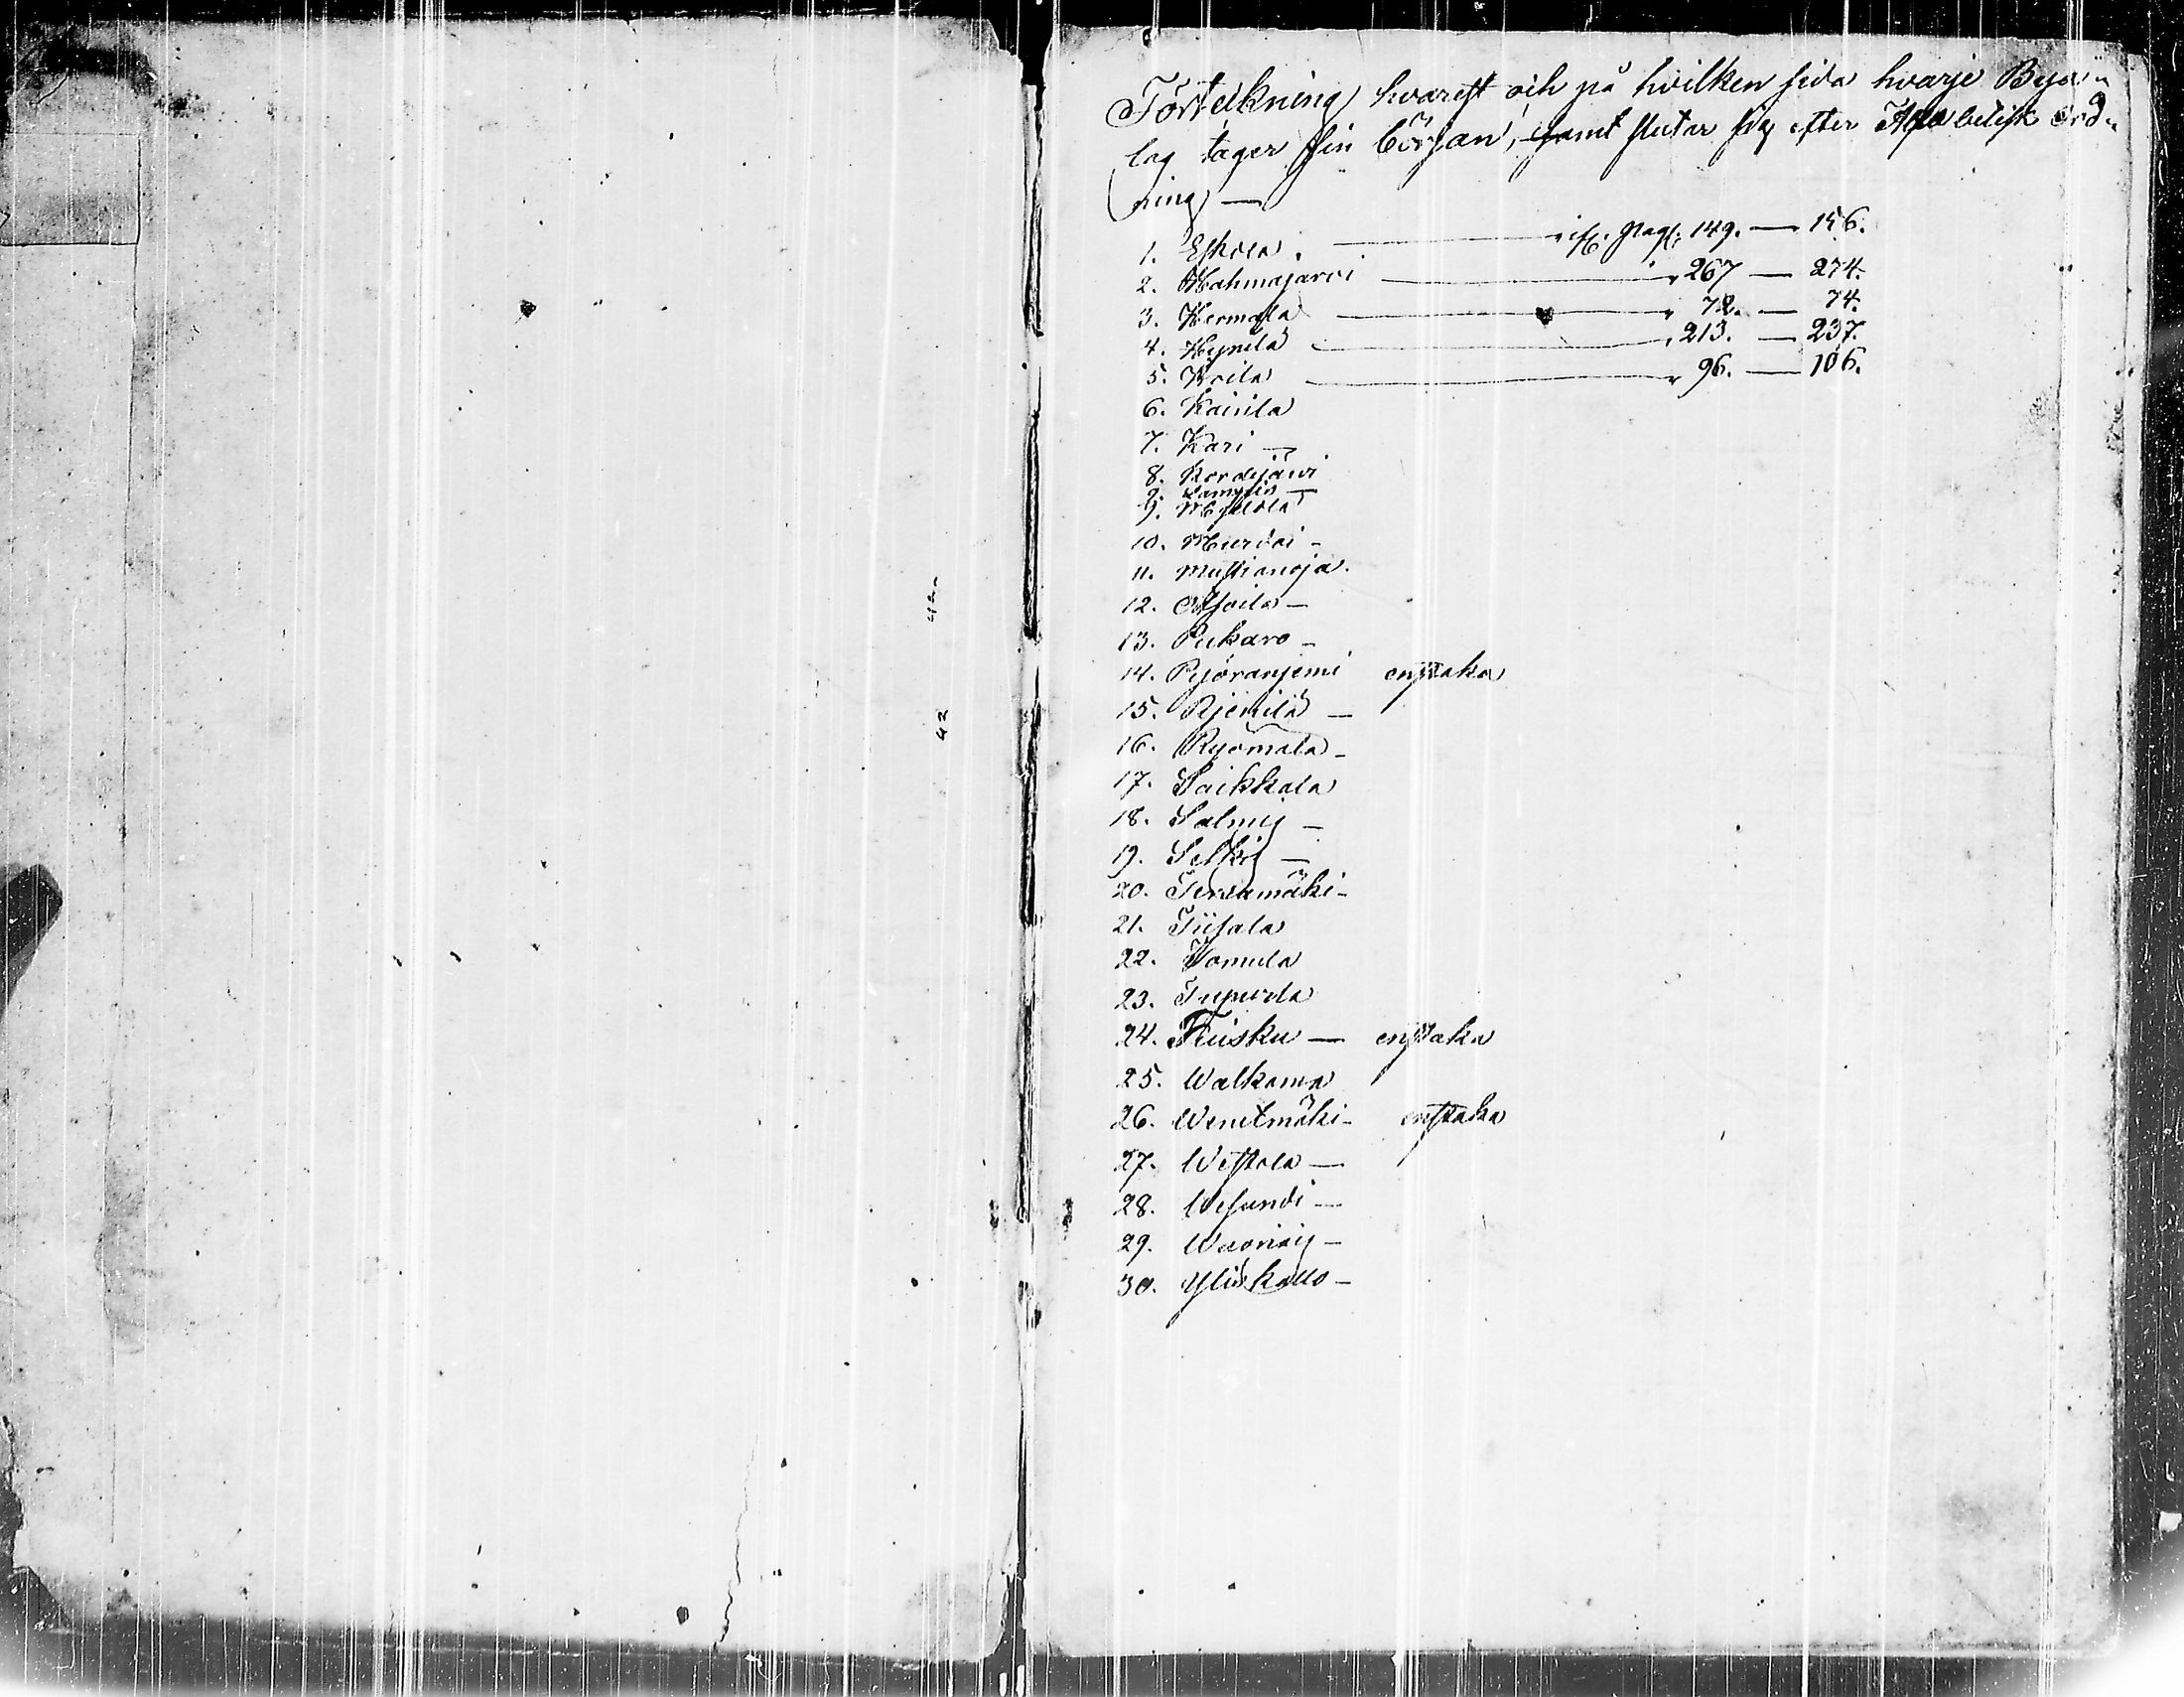 Förtekning hvarest och på hvilken sida hvarje Bya-
lag tager sin början, samt slutar sig efter Alfabetisk Ord-
ning —
1. Eskola — pag: 149. — 156.
2. Hahmajärvi — 267 — 274.
3. Hermala — 72. — 74.
4. Hypula — 213. — 237.
5. Koila — 96. — 106.
6. Kainila
7. Kari —
8. Kordejärvi
9. —
9. Myllola
10. —
11. Mustianoja.
12. —
13. Pukaro —
14. Pyöraniemi enstaka
15. —
16. Ryömala —
17. Saikkala
18. Salmij —
19. Selkij —
20. Tervamäki —
21. Tiisala
22. Tomula
23. Tupurla
24. Tuisku — enstaka
25. Walkama
26. Wenetmäki — enstaka
27. Westola —
28. Wesundi —
29. —
30. Yliskallo —
42
42